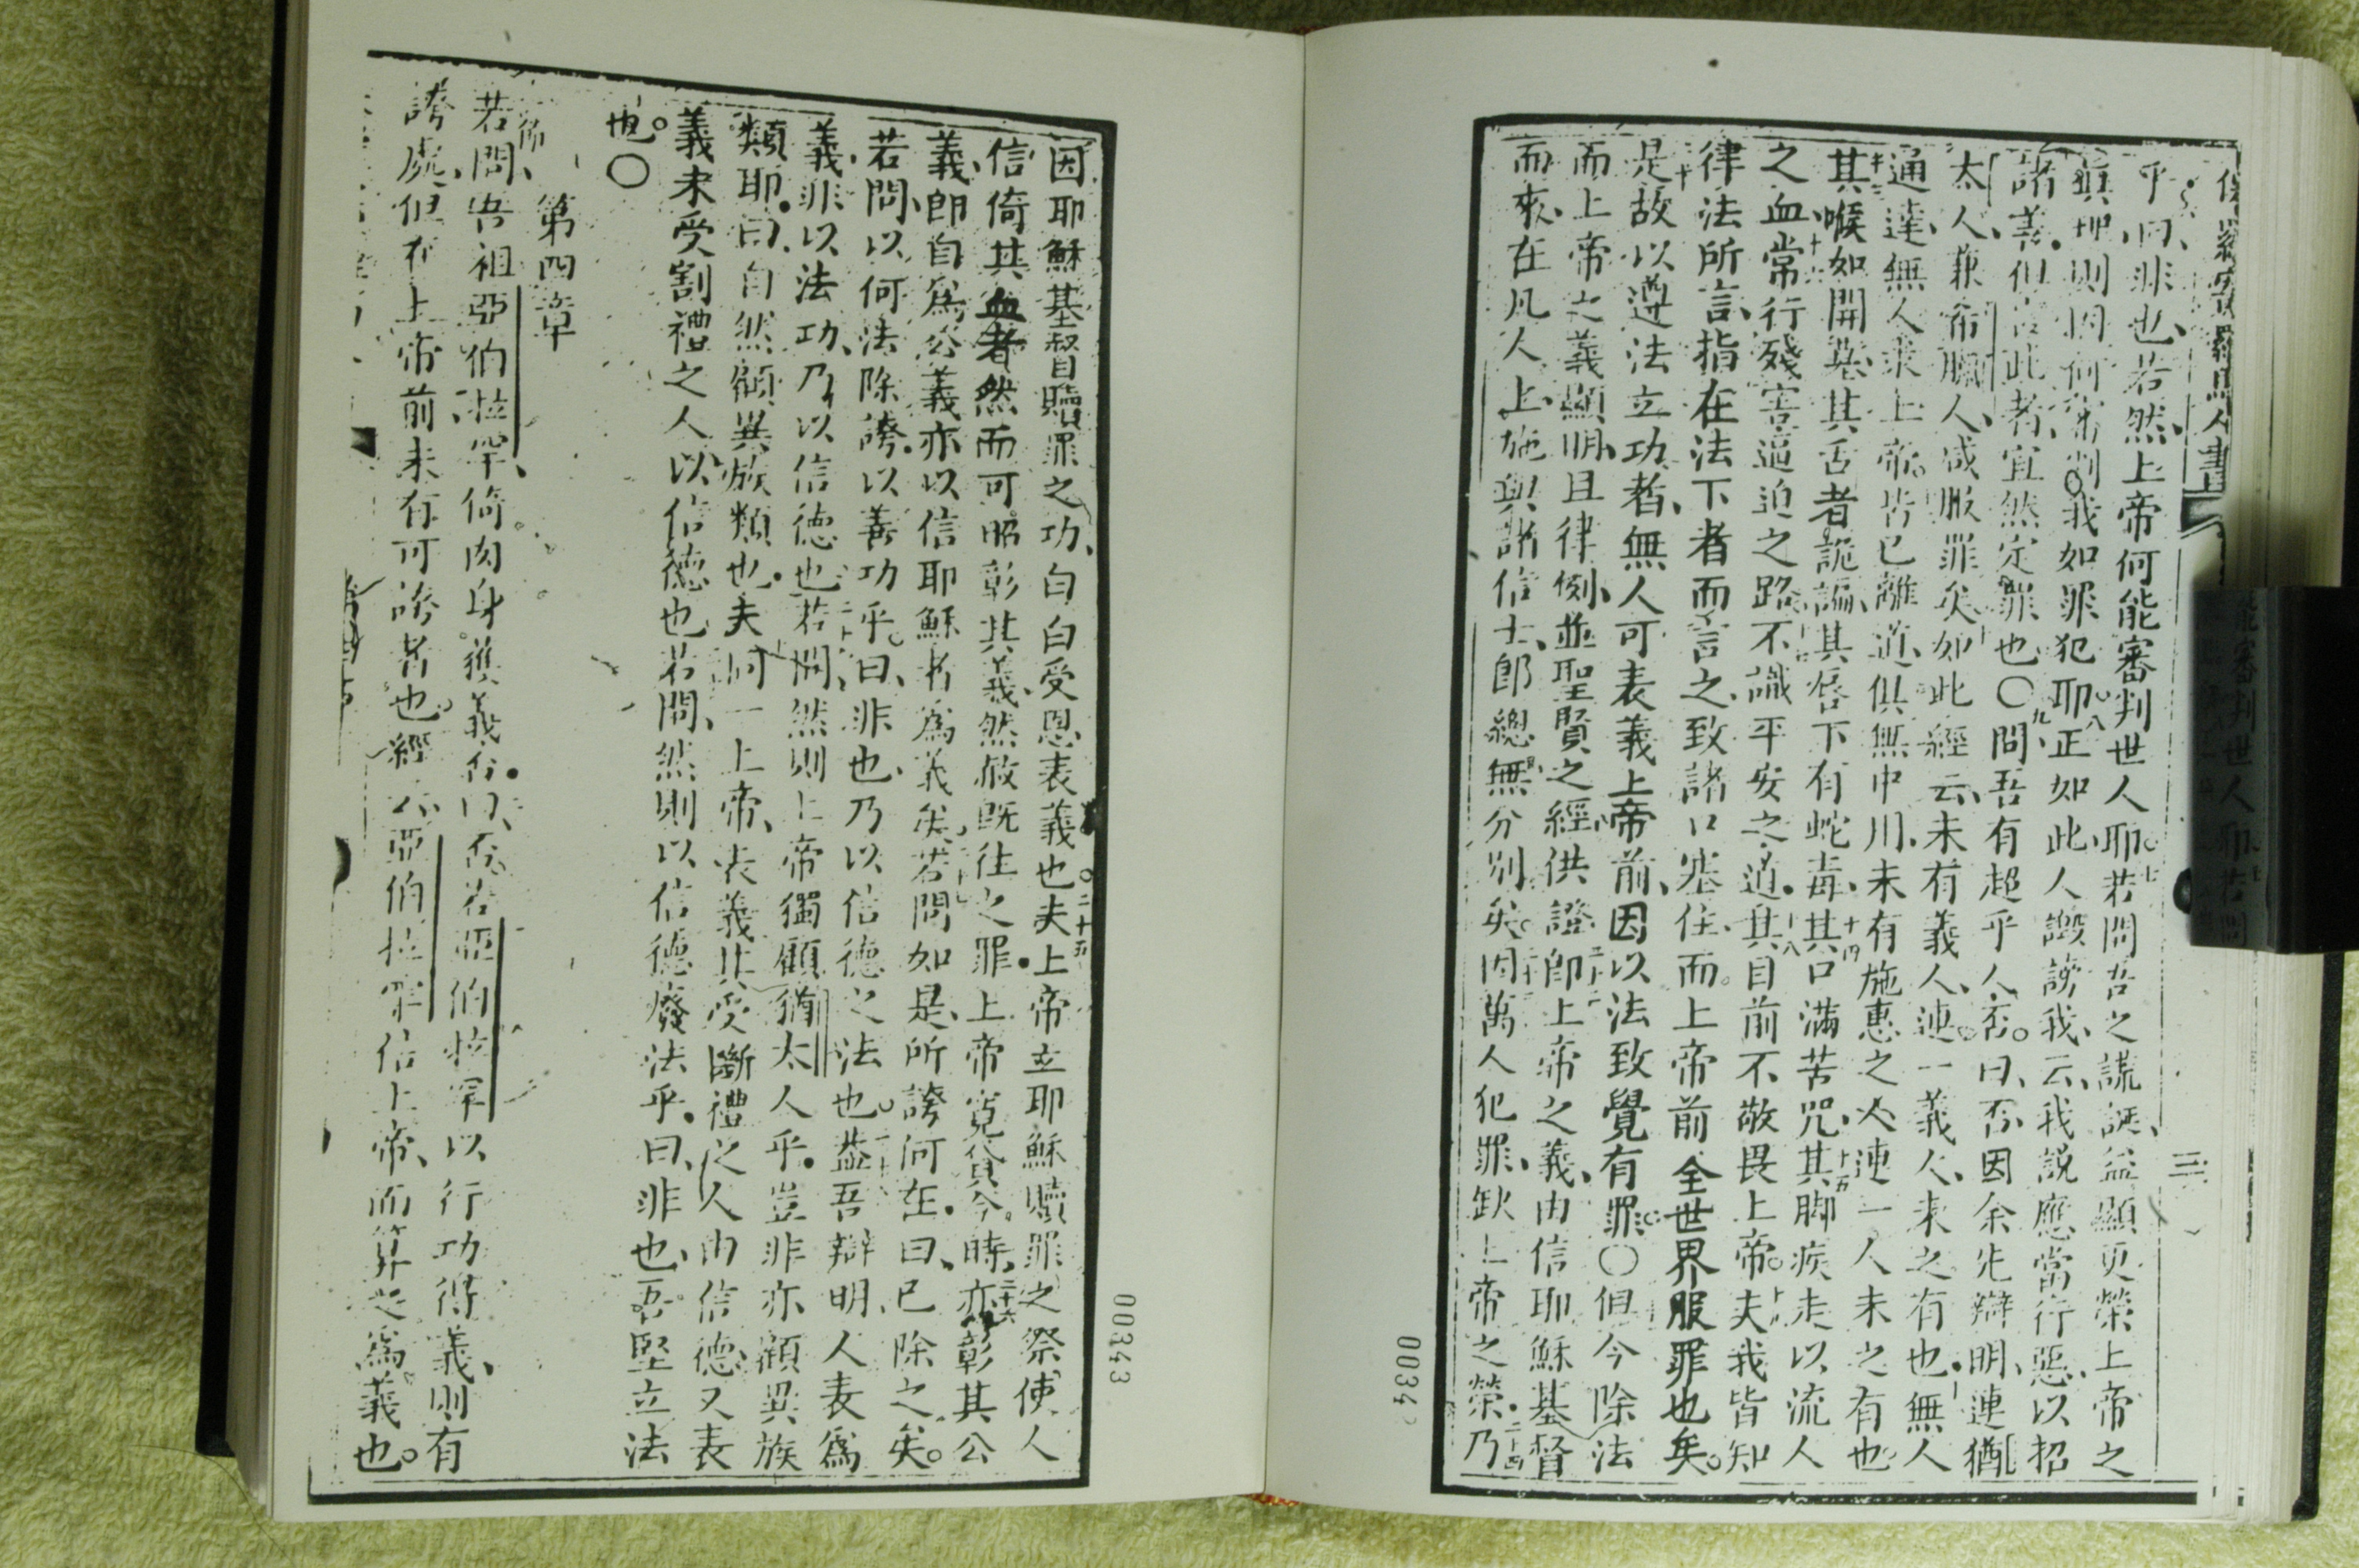 保羅寄羅馬人書
三
乎曰、非也、若然、上帝何能審判世人耶。七若問吾之謊誕、益顯更榮上帝之
眞、耶則因何審判我如罪犯耶。八正如此人譭謗我、云、我説應當行惡、以招
諸義。但言此者、宜然定罪也、〇九問、吾有超乎人否。曰、否因余先辯明、連猶
太人、兼希臘人、咸服罪矣、十如此經云、未有義人、連一義人、未之有也。無人
通達、無人求上帝。皆已離道、俱無中用、未有施惠之人、連一人未之有也
十三其喉如開墓、其舌者詭譎、其唇下有蛇毒、十四其口滿苦咒、十五其脚疾走以流人
之血、十六常行殘害逼迫之路、不識平安之道。十八其目前不敬畏上帝。夫我皆知
律法所言、指在法下者而言之、致諸口塞住、而上帝前全世界服罪也矣。
是故以遵法立功者、無人可表義上帝前、因以法致覺有罪。〇但今除法
而上帝之義顯明、且律例、並聖賢之經供證、卽上帝之義、由信耶穌基督
而來、在凡人上、施與諸信士、郎總無分別矣。因萬人犯罪、缺上帝之榮、二十四乃
0034
00343
因耶穌基督贖罪之功、白白受恩、表義也。二十五夫上帝立耶穌贖罪之祭、使人
信倚其血者、然而可昭彰其義、然赦既往之罪。上帝寬貸今時、二十六亦彰其公
義、卽自爲公義、亦以信耶穌者爲義矣、若問如是、所誇何在。曰、已除之矣。
若問、以何法除誇、以善功乎。曰、非也、乃以信德之法也。蓋吾辯明、人表爲
義、非以法功、乃以信德也、若問、然則上帝獨顧猶太人乎。豈非亦顧異族
類耶。曰、自然顧異族類也。夫同一上帝、表義其受斷禮之人由信德、又表
義未受割禮之人以信德也、若問、然則以信德廢法乎。曰、非也、吾堅立法
也。〇
第四章
若問、吾祖亞伯拉罕、倚肉身獲義否。曰、否、若亞伯拉罕以行功得義、則有
誇處、但在上帝前未有可誇者也。經云、亞伯拉罕信上帝、而算之爲義也。